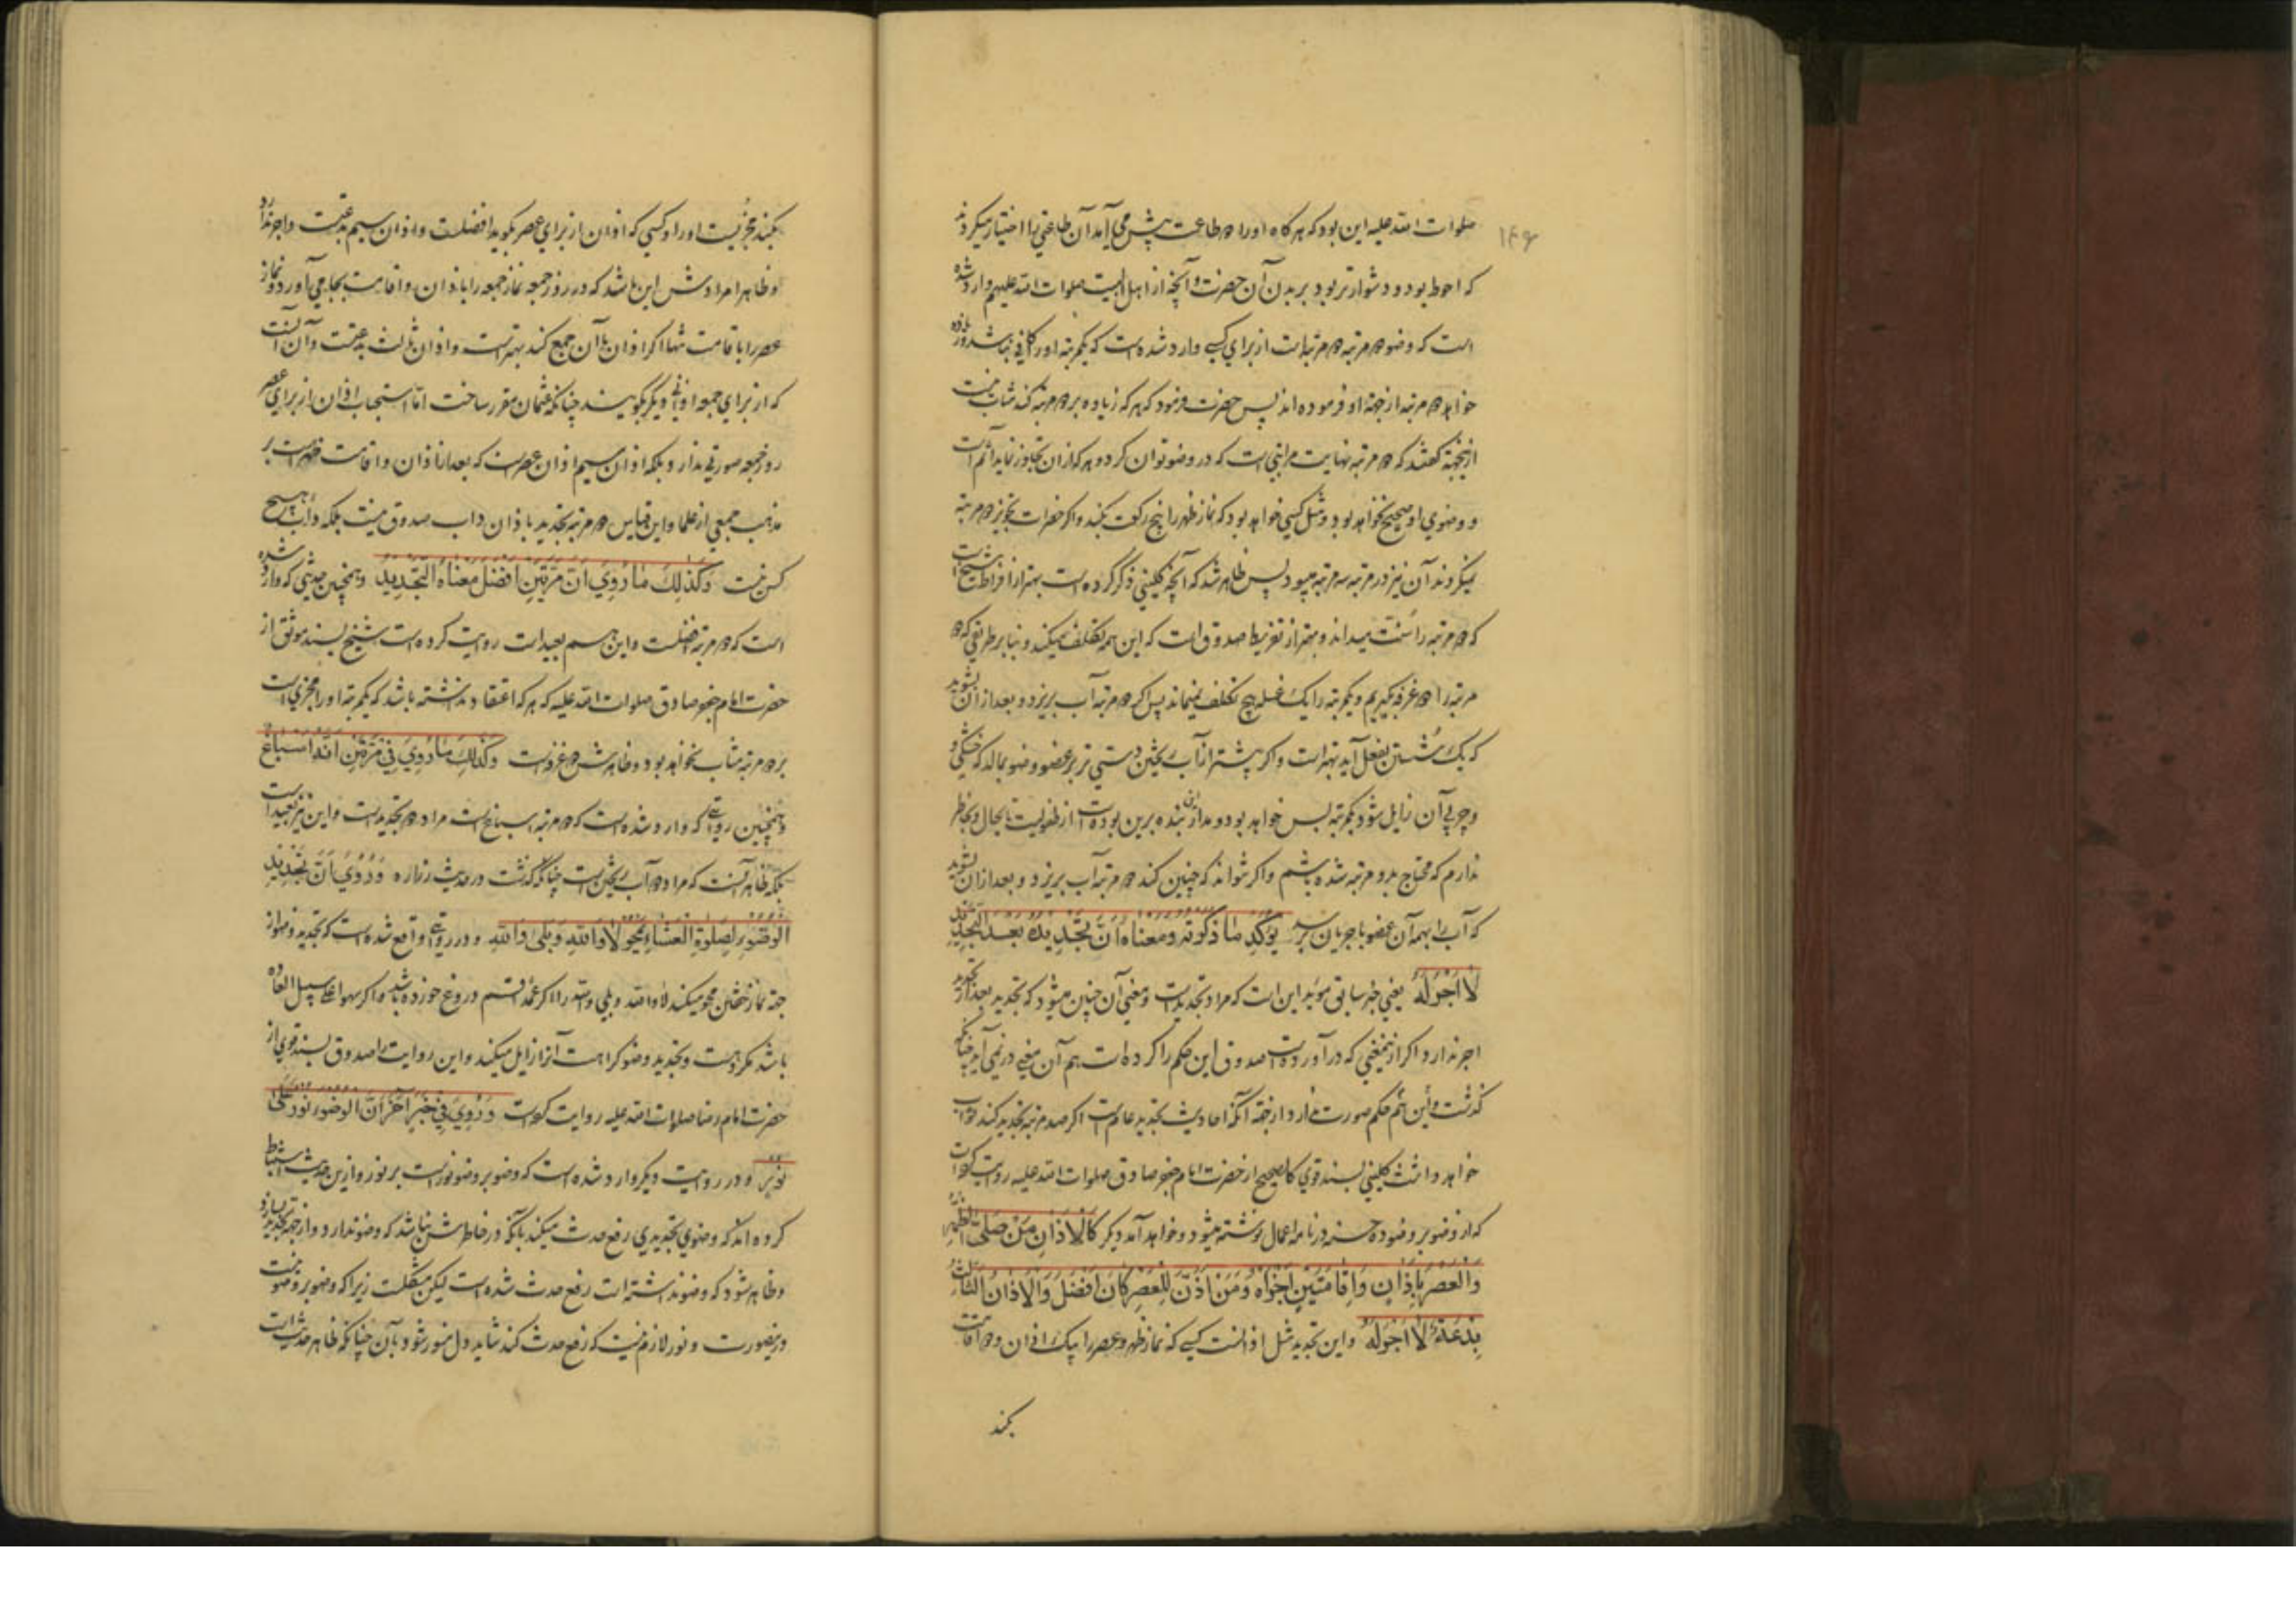 ۱۴۶
صلوات الله علیه این بود که هر کاه او را دو طاعت پیش می آمد آن طاعتی را اختیار میکردند
که احوط بود و دشوارتر بود بر بدن آن حضرت و آنچه از اهل البیت صلوات الله علیهم وارد شده
است که وضو دو مرتبه دو مرتبه است از برای کسی وارد شده است که یکمرتبه او را کافی نباشد و
خواهد دو مرتبه از جهة او فرموده اند پس حضرت فرمود که هر که زیاده بر دو مرتبه کند مثاب نیست
ازینجهة کفتند که دو مرتبه نهایت مراتبی است که در وضو توان کرد و هر که از ان تجاوز نماید آثم است
و وضوی او صحیح نخواهد بود و مثل کسی خواهد بود که نماز ظهر را پنج رکعت بکند و اکر حضرات تجویز دو مرتبه
نمیکردند آن نیز در مرتبه سه مرتبه میبود پس ظاهر شد که آنچه کلینی ذکر کرده است بهتر از افراط شیخ است
که دو مرتبه را سنت میداند و بهتر از تفریط صدوق است که این همه تکلف میکند و بنا بر طریقی که دو
مرتبه را دو غرفه بکیریم و یکمرتبه را یک غسله هیچ تکلف نمیماند پس اکر دو مرتبه آب بریزد و بعد از ان بشوید
که یک شستن بفعل آید بهتر است و اکر پیشتر از آب ریختن دستی تر بر عضو وضو بمالد که خشکی و
چربی آن زایل شود یکمرتبه بس خواهد بود و مدار بنده برین بوده است از طفولیت تا بحال و بخاطر
ندارم که محتاج بدو مرتبه شده باشم و اکر نتواند که چنین کند دو مرتبه آب بریزد و بعد از ان بشوید
که آب را بهمه آن عضو با جریان برسد یُؤَکِّدُ مٰا ذَکَرْتُهُ وَمَعْنٰاهُ اَنَّ تَجْدِیْدَهُ بَعْدَ التَّجْدِیْدِ
لٰا اَجْرَ لَهُ یعنی خبر سابق مؤید این است که مراد تجدید است و معنی آن چنین میشود که تجدید بعد از تجدید
اجر ندارد اکر از ینمعنی که در آورده است صدوق این حکم را کرده است هم آن معنی در نمی آید چنانکه
کذشت و این هم حکم صورت ندارد از جهة آنکه احادیث تجدید عام است اکر صد مرتبه تجدید کند ثواب
خواهد داشت کلینی بسند قوی کالصحیح از حضرت امام جعفر صادق صلوات الله علیه روایت کرده است
که از وضو بر وضو ده حسنه در نامه اعمال نوشته میشود و خواهد آمد دیکر کَالْاَذٰانِ مَنْ صَلَّی الظُّهْرَ
وَالْعَصْرَ بِاَذٰانٍ وَاِقٰامَتَیْنِ اَجْزَاَهُ وَمَنْ اَذَّنَ لِلْعَصْرِ کٰانَ اَفْضَلَ وَالْاَذٰانُ الثّٰالِثُ
بِدْعَةٌ لٰا اَجْرَ لَهُ و این تجدید مثل اذانست کسی که نماز ظهر و عصر را بیک اذان و دو اقامت
بکند
بکند مجزیست او را و کسی که اذان از برای عصر بکوید افضلست و اذان سیم بدعتست و اجر ندارد
و ظاهرا مرادش این باشد که در روز جمعه نماز جمعه را باذان و اقامت بجا می آورد و نماز
عصر را باقامت تنها اکر اذان با آن جمع کند بهتر است و اذان ثالث بدعتست و آن آنست
که از برای جمعه اذانی دیکر بکویند چنانکه عثمان مقرر ساخت اما استحباب اذان از برای عصر
روز جمعه صورتی ندارد و بلکه اذان سیم اذان عصر است که بعد از اذان و اقامت ظهر است بر
مذهب جمعی از علما و این قیاس دو مرتبه تجدید باذان داب صدوق نیست بلکه داب هیچ
کس نیست وَکَذٰلِکَ مٰا رُوِیَ اَنَّ مَرَّتَیْنِ اَفْضَلُ مَعْنٰاهُ التَّجْدِیْدُ و همچنین حدیثی که وارد شده
است که دو مرتبه افضلست و این هم بعید است روایت کرده است شیخ بسند موثق از
حضرت امام جعفر صادق صلوات الله علیه که هر که اعتقاد نداشته باشد که یکمرتبه او را مجزی است
بر دو مرتبه مثاب نخواهد بود و ظاهرش دو غرفه است وَکَذٰلِکَ مٰا رُوِیَ فِیْ مَرَّتَیْنِ اَنَّهُ اِسْبٰاغٌ
و همچنین روایتی که وارد شده است که دو مرتبه اسباغ است مراد دو تجدید است و این نیز بعید است
بلکه ظاهر آنست که مراد دو آب ریختن است چنانکه کذشت در حدیث زراره وَرُوِیَ اَنَّ تَجْدِیْدَ
الْوُضُوْءِ لِصَلٰوةِ الْعِشٰاءِ یَمْحُوْ لٰا وَاللّٰهِ وَبَلٰی وَاللّٰهِ و در روایتی واقع شده است که تجدید وضو از
جهة نماز خفتن محو میکند لا والله و بلی والله را اکر عمدا قسم دروغ خورده باشد و اکر سهوا علی سبیل العاده
باشد مکروهست و تجدید وضو کراهت آنرا زایل میکند و این روایت را صدوق بسند قوی از
حضرت امام رضا صلوات الله علیه روایت کرده است وَرُوِیَ فِیْ خَبَرٍ اٰخَرَ اَنَّ الْوُضُوْءَ نُوْرٌ عَلٰی
نُوْرٍ و در روایت دیکر وارد شده است که وضو بر وضو نوریست بر نور و ازین حدیث استنباط
کرده اند که وضوی تجدیدی رفع حدث میکند بآنکه در خاطرش نباشد که وضو ندارد و از جهة تجدید بسازد
و ظاهر شود که وضو نداشته است رفع حدث شده است لیکن مشکلست زیرا که وضو بر وضو نیست
درینصورت و نور لازم نیست که رفع حدث کند شاید دل منور شود بآن چنانکه ظاهر حدیث است